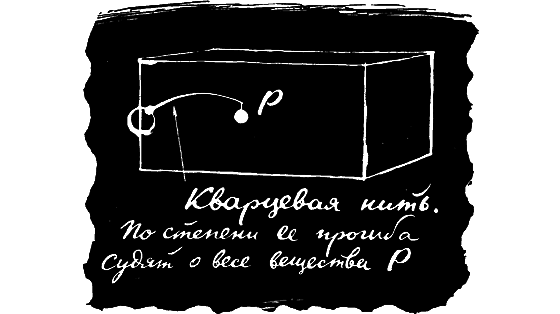 P
Кварцевая нить.
По степени ее прогиба
судят о весе вещества P